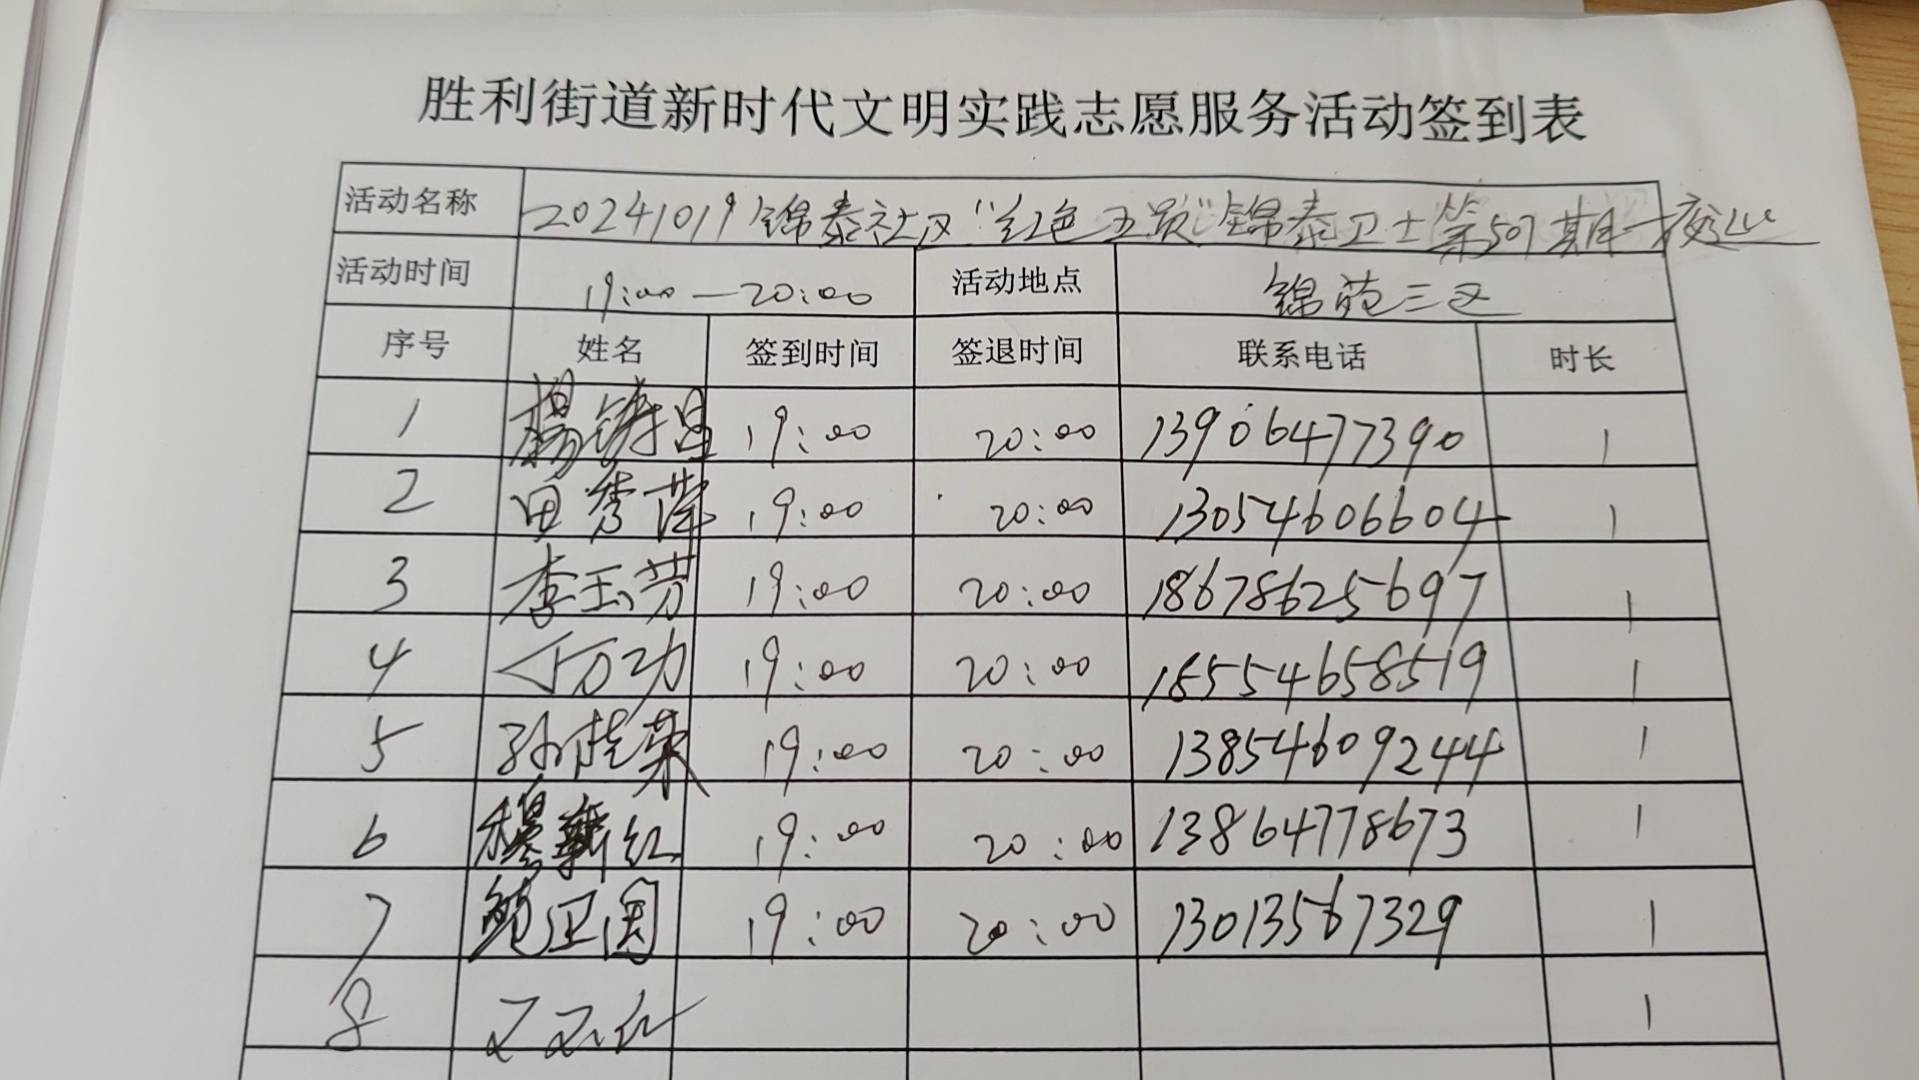 胜利街道新时代文明实践志愿服务活动签到表
活动名称 20241019锦泰社区"红色五员"锦泰卫士第507期—夜巡
活动时间 19:00—20:00 活动地点 锦苑三区
序号 姓名 签到时间 签退时间 联系电话 时长
1 杨铸昌 19:00 20:00 13906477390 1
2 田秀萍 19:00 20:00 13054606604 1
3 李玉芳 19:00 20:00 18678625697 1
4 万功 19:00 20:00 18554658519 1
5 孙桂荣 19:00 20:00 13854609244 1
6 穆新红 19:00 20:00 13864778673 1
7 鲍卫国 19:00 20:00 13013567329 1
8 1